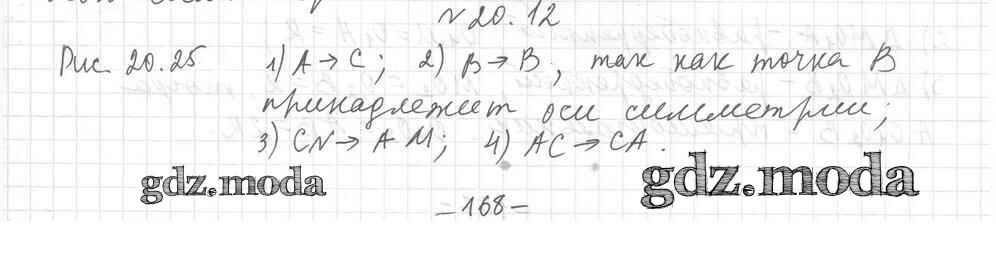 N 20.12
Рис. 20.25 1) A→C; 2) B→B, так как точка B
принадлежит оси симметрии;
3) CN→AM; 4) AC→CA.
gdz.moda gdz.moda
–168–